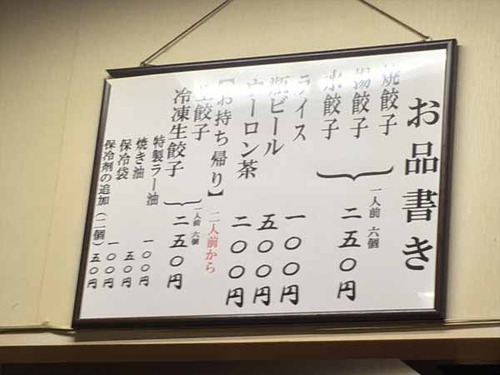 お品書き
焼餃子
湯餃子
水餃子
一人前 六個
二五〇円
ライス 一〇〇円
瓶ビール 五〇〇円
ウーロン茶 二〇〇円
【お持ち帰り】二人前から
生餃子
冷凍生餃子
一人前 六個
二五〇円
特製ラー油 一〇〇円
焼き油 五〇円
保冷袋 一〇〇円
保冷剤の追加（二個）五〇円